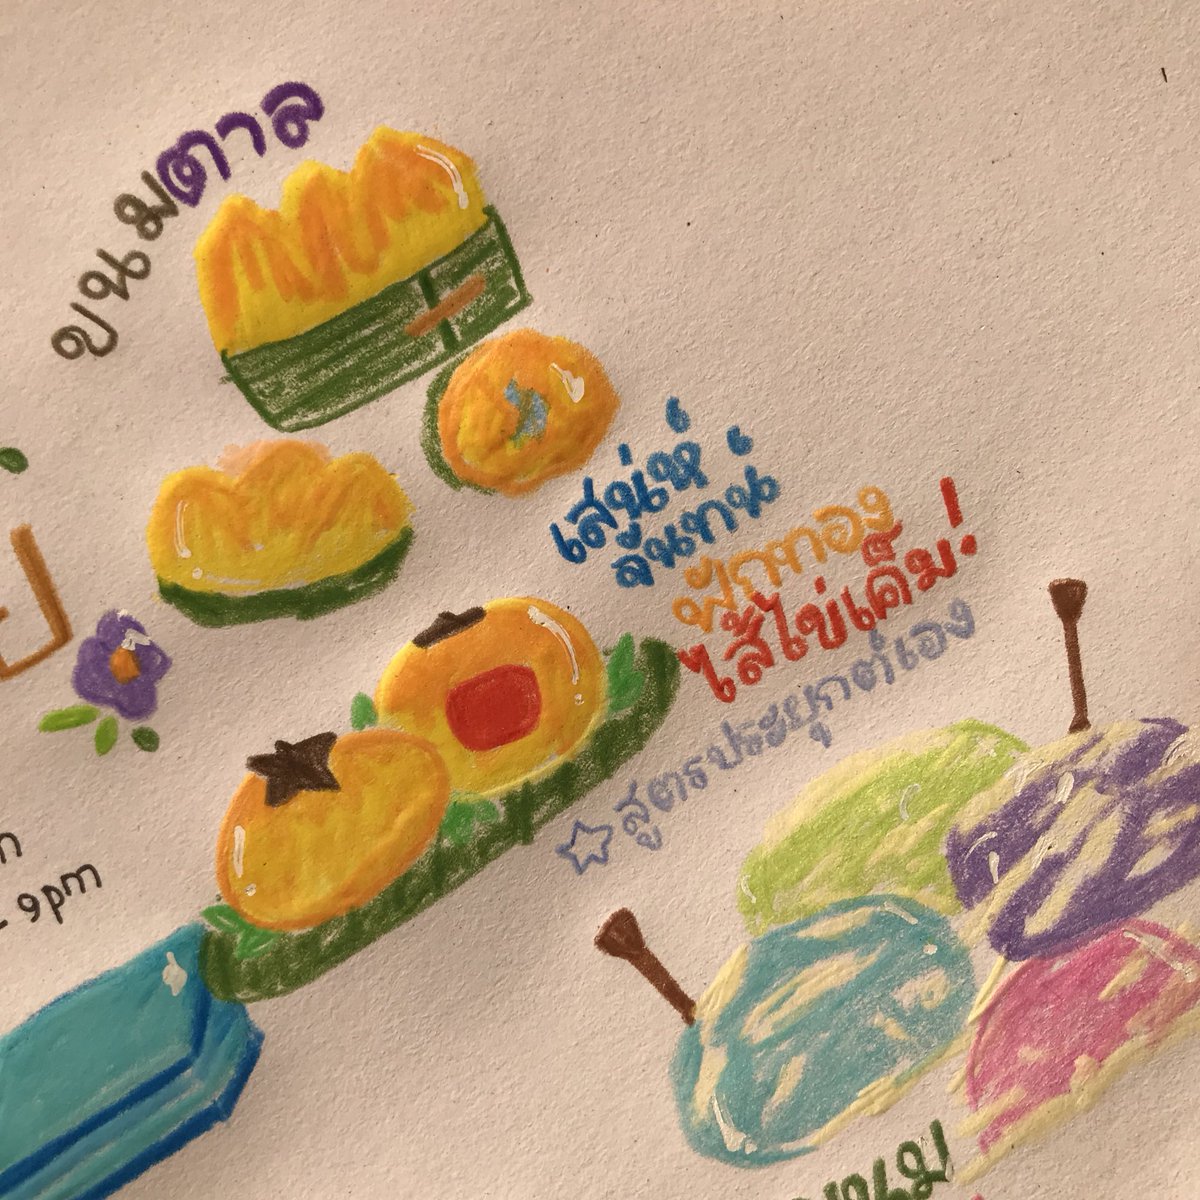 ขนมตาล
เสน่ห์
จันทน์
ฟักทอง
ไส้ไข่เค็ม!
☆ สูตรประยุกต์เอง
9pm
ขนม